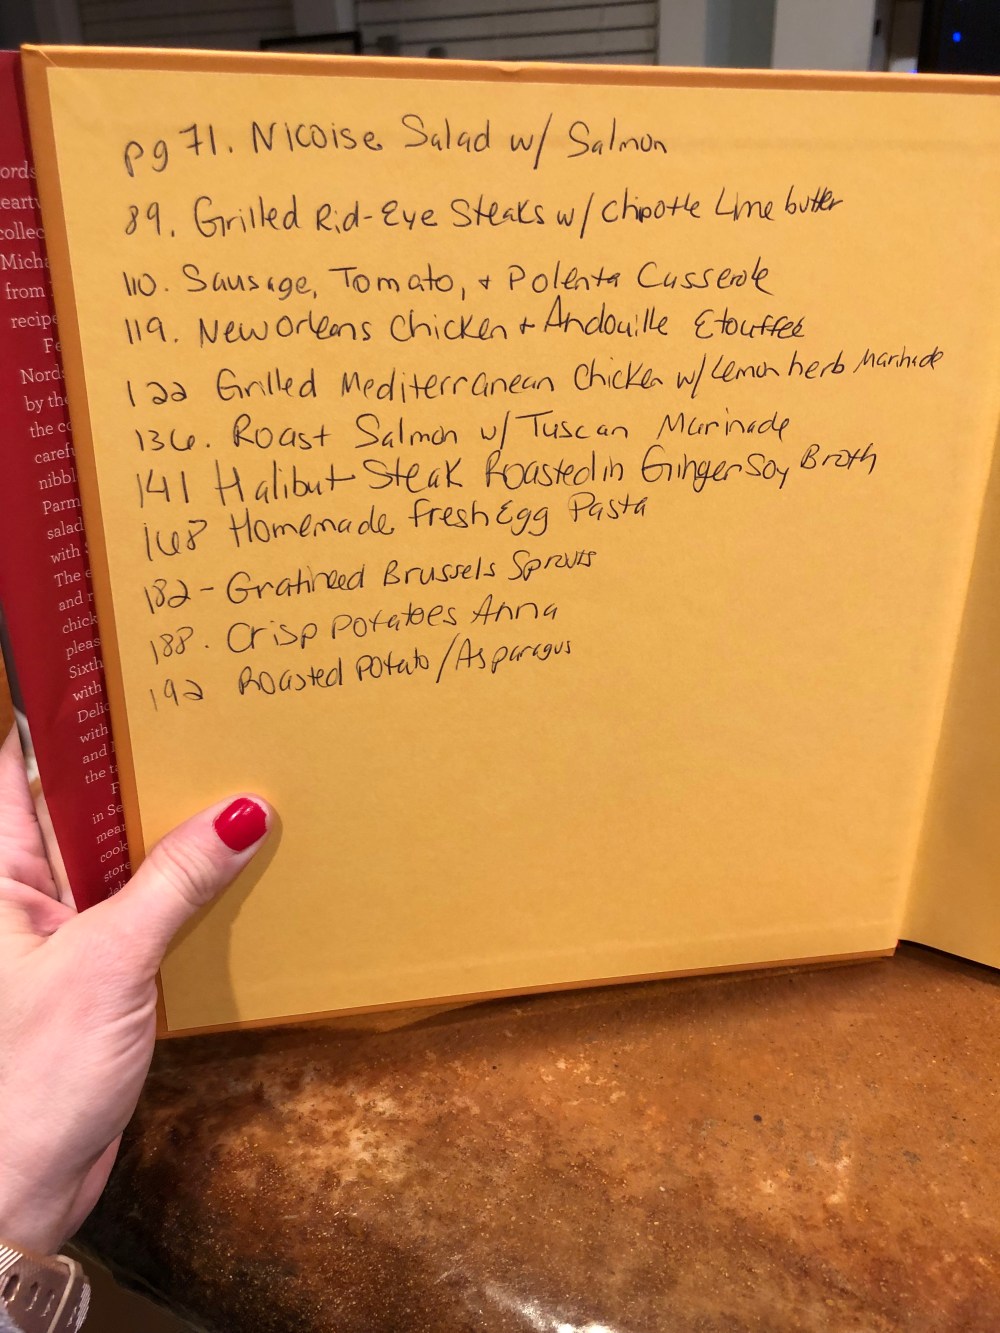 pg 71. Nicoise Salad w/ Salmon
89. Grilled Rid-Eye Steaks w/ Chipotle Lime butter
110. Sausage, Tomato, + Polenta Casserole
119. New Orleans Chicken + Andouille Etouffee
122 Grilled Mediterranean Chicken w/ Lemon herb Marinade
136. Roast Salmon w/ Tuscan Marinade
141 Halibut Steak Roasted in Ginger Soy Broth
168 Homemade fresh Egg Pasta
182 - Gratineed Brussels Sprouts
188. Crisp Potatoes Anna
192 Roasted Potato/Asparagus
ords
eartw
collec
Micha
from
recipe
Fe
Nord
by the
the co
carefu
nibbl
Parm
salad
with
The e
and r
chick
pleas
Sixth
with
Delic
with
and
the t
F
in Se
mean
cook
store